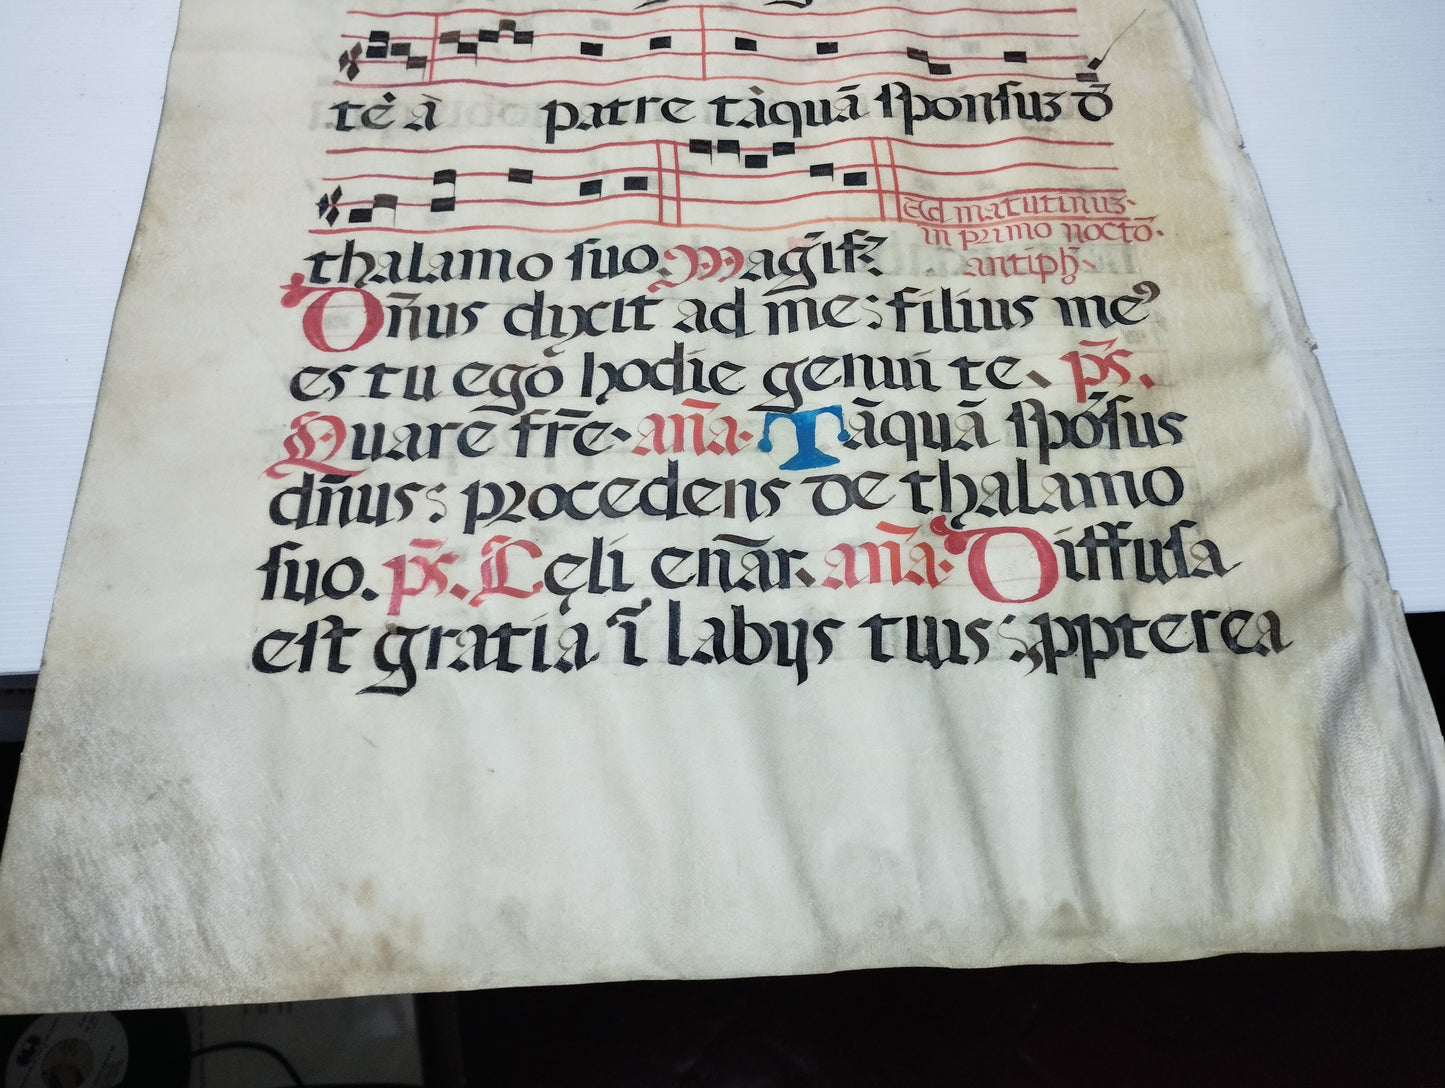 te à patre tāquā sponsus d̄
thalamo suo. Magīf.
Ad matutinus.
in primo noctō.
antiph.
Dn̄us dixit ad me: filius meꝰ
es tu ego hodie genui te. ps̄.
Quare fr̄e. an̄a. Tāquā spōsus
dn̄us: procedens de thalamo
suo. ps̄. Cęli enār. an̄a. Diffusa
est gratia ī labijs tuis: ꝓpterea